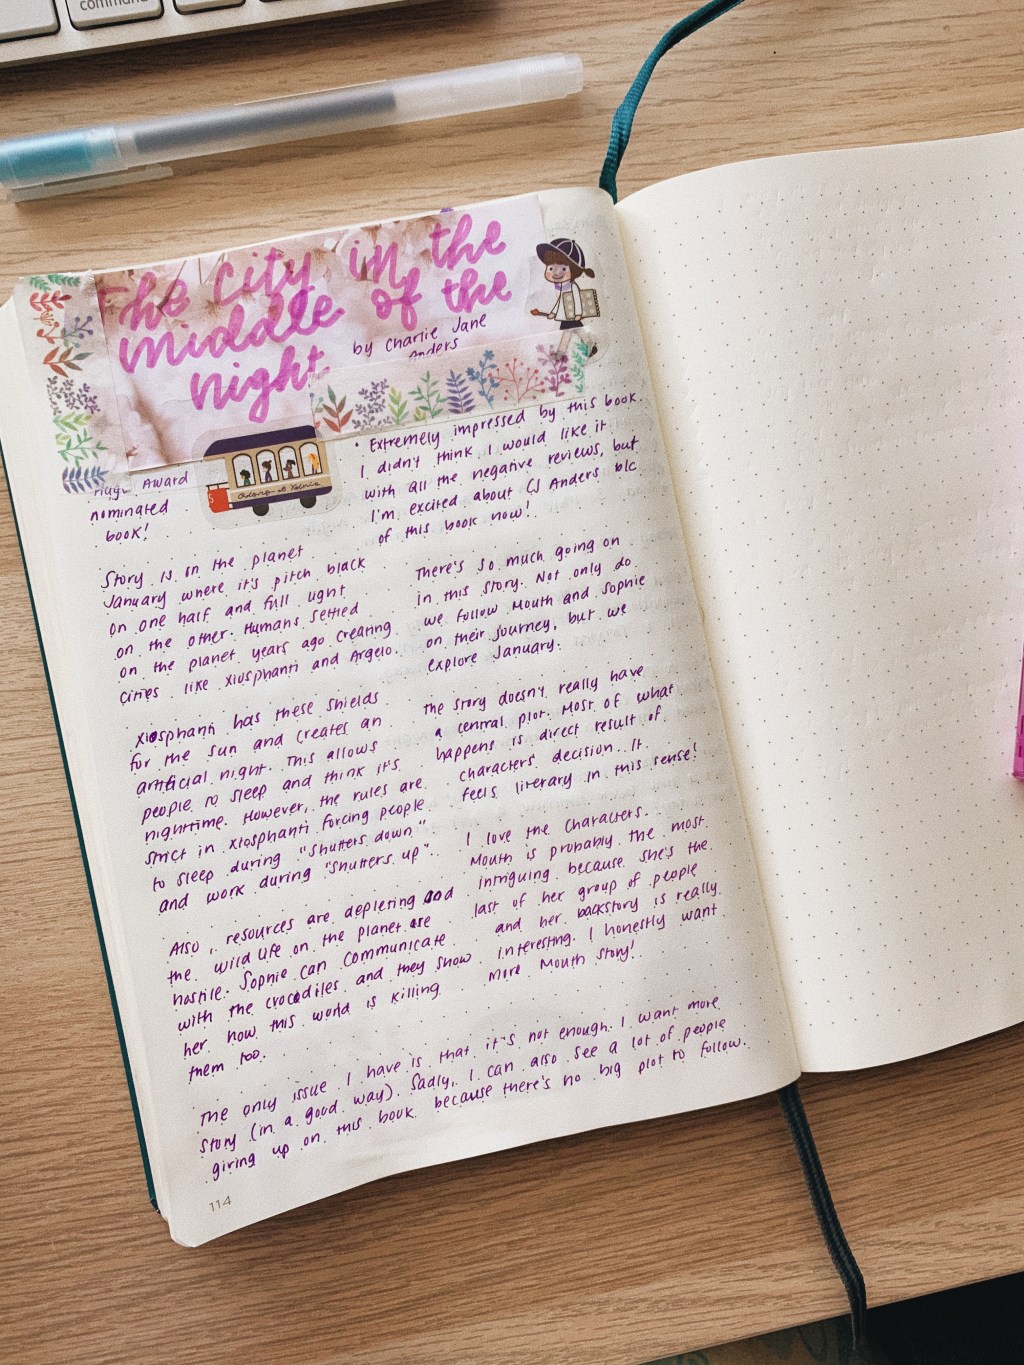 command
The City in the
middle of the
night
by Charlie Jane
Anders
Hugo Award
nominated
book!
Story is on the planet
January where it's pitch black
on one half and full light
on the other. Humans settled
on the planet years ago creating
cities like Xiosphanti and Argelo.
Xiosphanti has these shields
for the sun and creates an
artificial night. This allows
people to sleep and think it's
nighttime. However, the rules are
strict in Xiosphanti forcing people
to sleep during "Shutters down"
and work during "Shutters up".
Also, resources are depleting and
the wildlife on the planet are
hostile. Sophie can communicate
with the crocodiles and they show
her how this world is killing
them too.
• Extremely impressed by this book.
I didn't think I would like it
with all the negative reviews, but
I'm excited about CJ Anders b/c
of this book now!
There's so much going on
in this story. Not only do
we follow Mouth and Sophie
on their journey, but we
explore January.
The story doesn't really have
a central plot. Most of what
happens is direct result of
characters' decision. It
feels literary in this sense!
I love the characters.
Mouth is probably the most
intriguing because she's the
last of her group of people
and her backstory is really
interesting. I honestly want
more Mouth story!
The only issue I have is that it's not enough. I want more
story (in a good way). Sadly, I can also see a lot of people
giving up on this book because there's no big plot to follow.
114